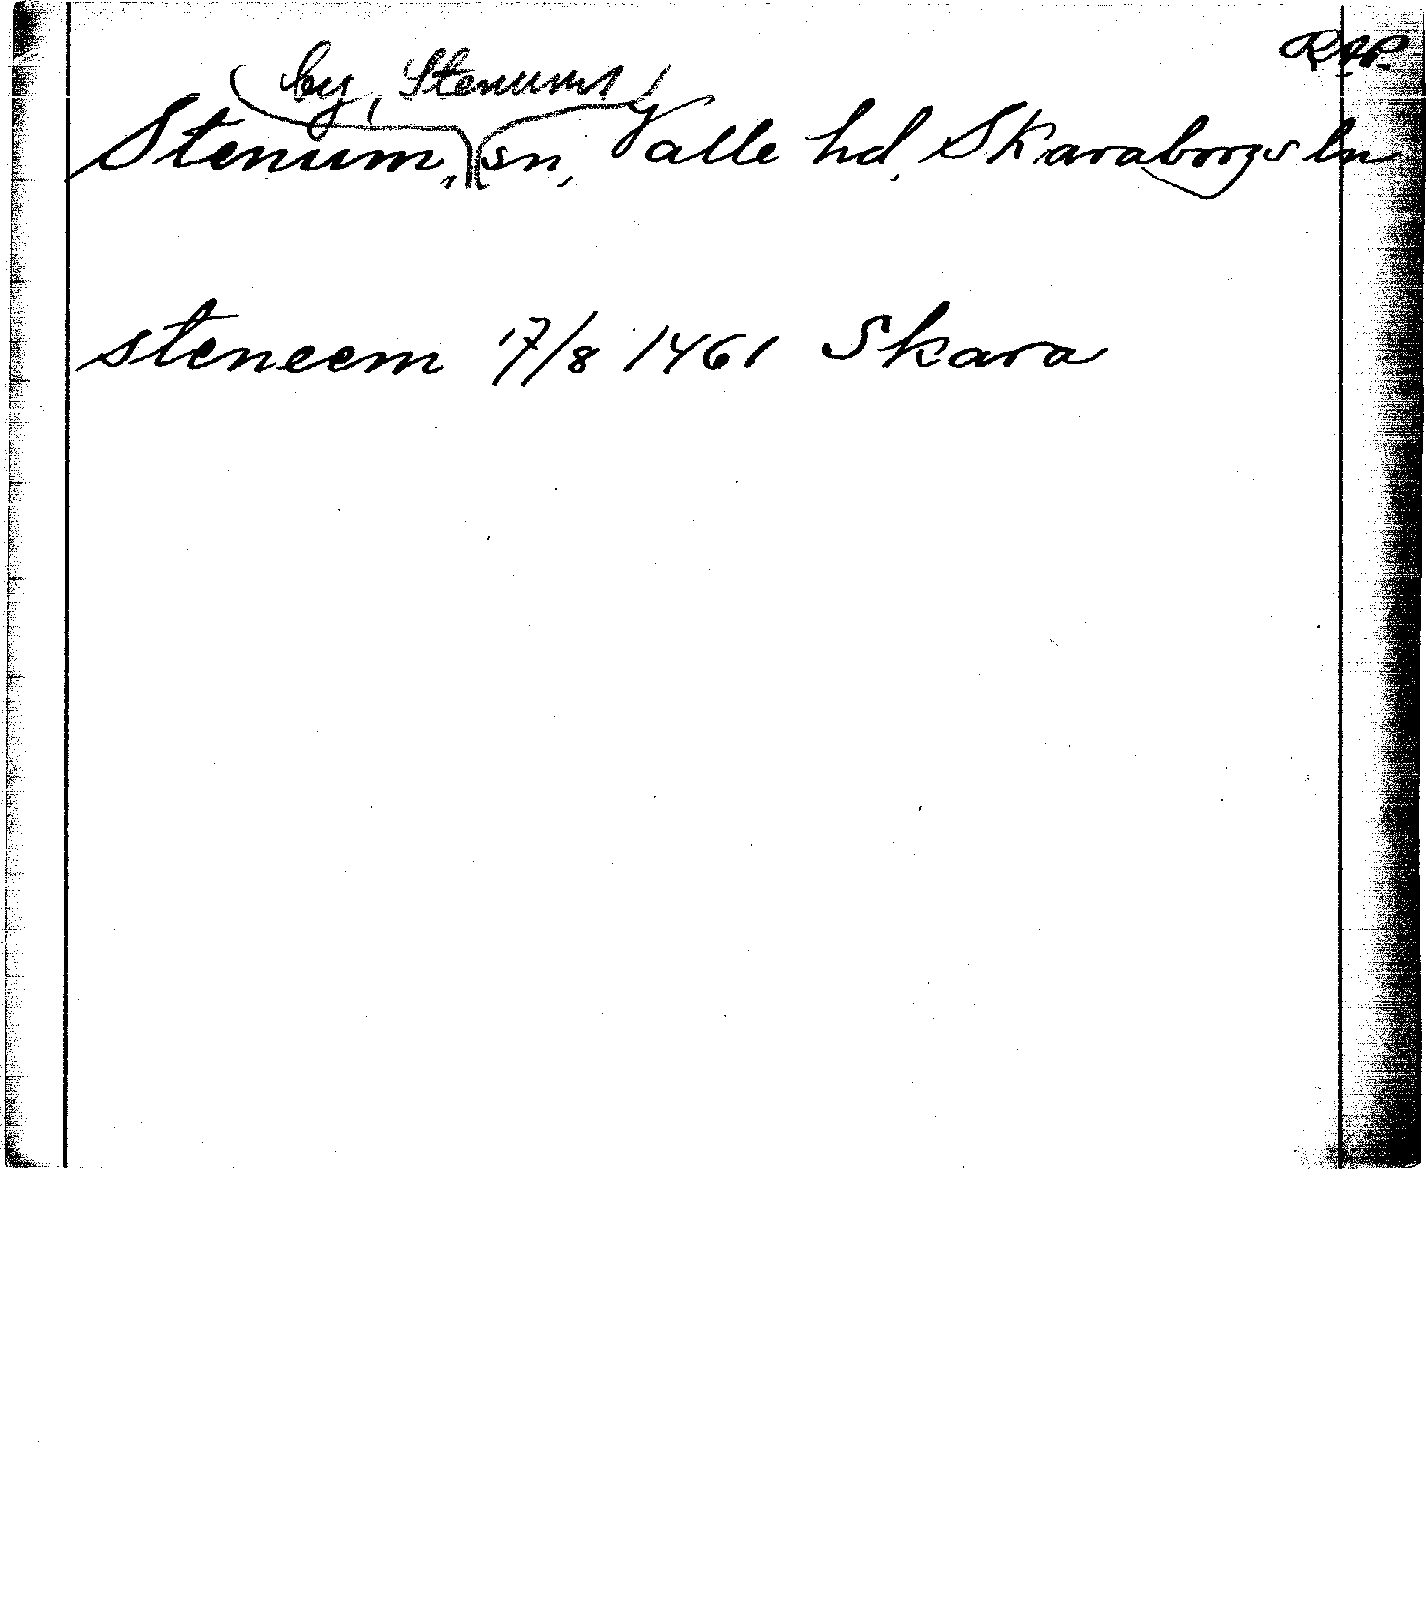 RAP.
by, Stenums
Stenum, sn, Valle hd, Skaraborgs ln
steneem 17/8 1461 Skara